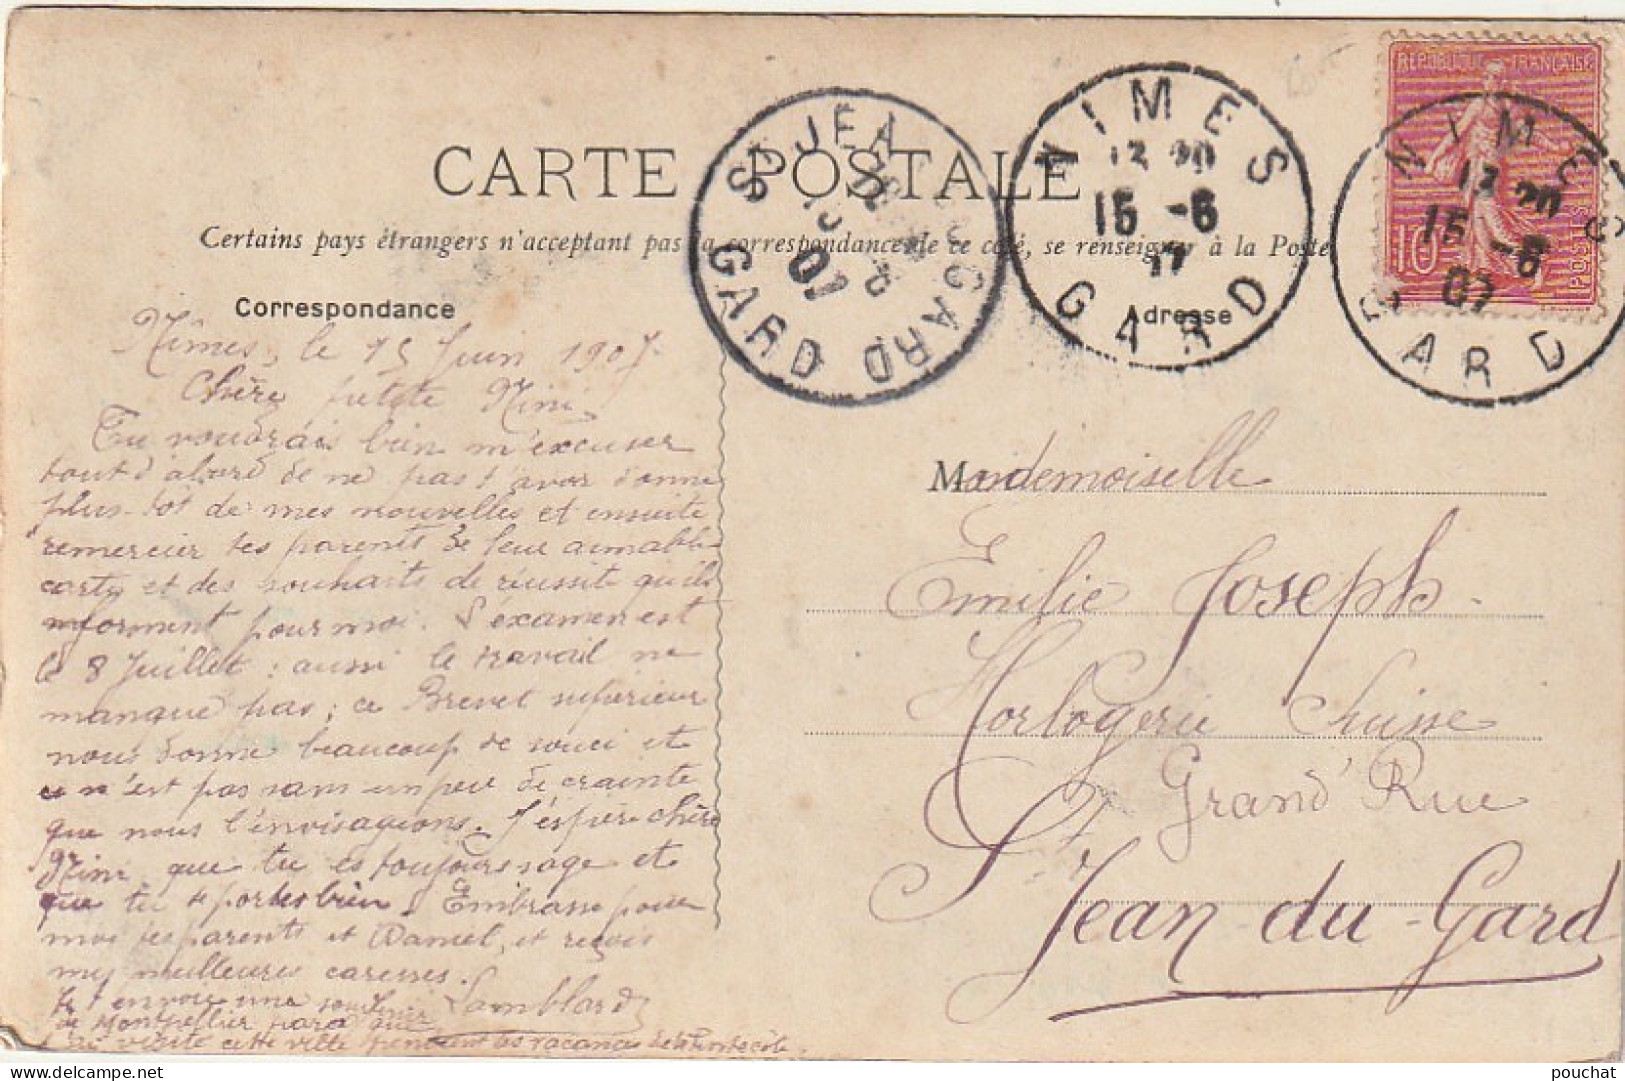 CARTE POSTALE
Certains pays étrangers n'acceptant pas la correspondance de ce côté, se renseigner à la Poste
Correspondance
Adresse
REPUBLIQUE FRANÇAISE
POSTES
10
NIMES
13 20
15 -6
07
GARD
NIMES
13 20
15 -6
07
GARD
ST JEAN DU GARD
07
GARD
Nîmes, le 15 Juin 1907
Chère petite Nini,
Tu voudrais bien m'excuser
tout d'abord de ne pas t'avoir donné
plus tôt de mes nouvelles et ensuite
remercier tes parents de leur aimable
carte et des souhaits de réussite qu'ils
forment pour moi. L'examen est
le 8 Juillet : aussi le travail ne
manque pas; ce Brevet supérieur
nous donne beaucoup de souci et
ce n'est pas sans un peu de crainte
que nous l'envisageons. J'espère chère
Nini que tu es toujours sage et
que tu te portes bien. Embrasse pour
moi tes parents et Daniel, et reçois
mes meilleures caresses.
Je t'envoie une
de Montpellier
ai visité cette ville pendant les vacances de la Pentecôte.
Lamblard
Mademoiselle
Emilie Joseph
Horlogerie Suisse
Grand'Rue
St Jean-du-Gard
pouchat